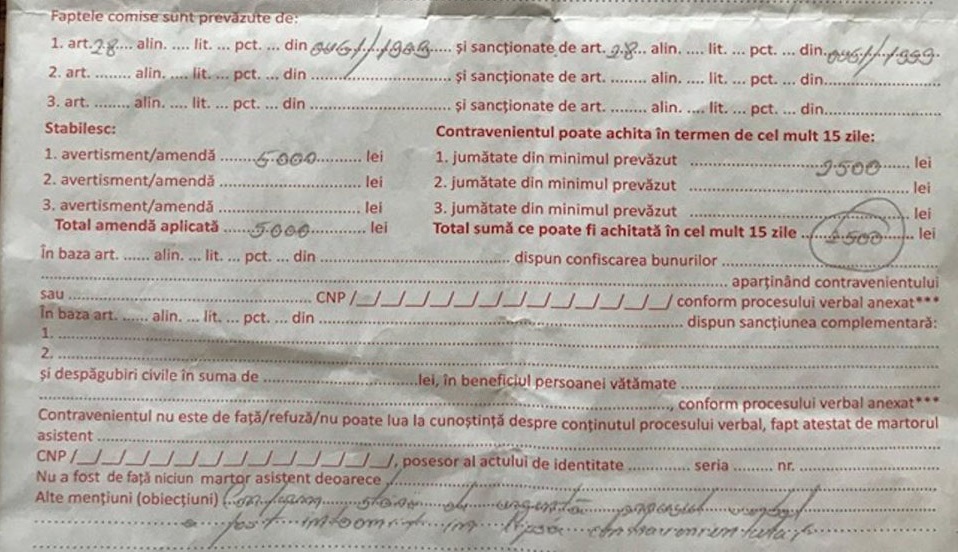 Faptele comise sunt prevăzute de:
1. art.28.... alin. .... lit. ... pct. ... din OUG1/1999..... și sancționate de art. 28... alin. .... lit. ... pct. ... din.OUG1/1999.
2. art. ........ alin. .... lit. ... pct. ... din ................................ și sancționate de art. ........ alin. .... lit. ... pct. ... din..........................
3. art. ........ alin. .... lit. ... pct. ... din ................................ și sancționate de art. ........ alin. .... lit. ... pct. ... din..........................
Stabilesc:
Contravenientul poate achita în termen de cel mult 15 zile:
1. avertisment/amendă .......5000........... lei
1. jumătate din minimul prevăzut .............................2500....... lei
2. avertisment/amendă ................................ lei
2. jumătate din minimul prevăzut .................................................. lei
3. avertisment/amendă ................................ lei
3. jumătate din minimul prevăzut .................................................. lei
Total amendă aplicată ......5000............ lei
Total sumă ce poate fi achitată în cel mult 15 zile .....2500....... lei
În baza art. ...... alin. ... lit. ... pct. ... din ............................................ dispun confiscarea bunurilor ................................................
.................................................................................................................... aparținând contravenientului
sau ...................................................... CNP /_/_/_/_/_/_/_/_/_/_/_/_/_/ conform procesului verbal anexat***
În baza art. ...... alin. ... lit. ... pct. ... din ........................................................................ dispun sancțiunea complementară:
1. ....................................................................................................................................................
2. ....................................................................................................................................................
și despăgubiri civile în suma de .................................lei, în beneficiul persoanei vătămate ..........................................................
........................................................................................................, conform procesului verbal anexat***
Contravenientul nu este de față/refuză/nu poate lua la cunoștință despre conținutul procesului verbal, fapt atestat de martorul
asistent ............................................................................................................................................
CNP /_/_/_/_/_/_/_/_/_/_/_/_/_/, posesor al actului de identitate .............. seria ......... nr. ......................
Nu a fost de față niciun martor asistent deoarece ....................................................................................
Alte mențiuni (obiecțiuni) Conform stare de urgență procesul verbal
a fost intocmit in lipsa contravenientului.